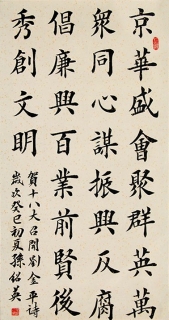 京華盛會聚群英萬
衆同心謀振興反腐
倡廉興百業前賢後
秀創文明
賀十八大召開劉金平詩
歲次癸巳初夏孫紹英